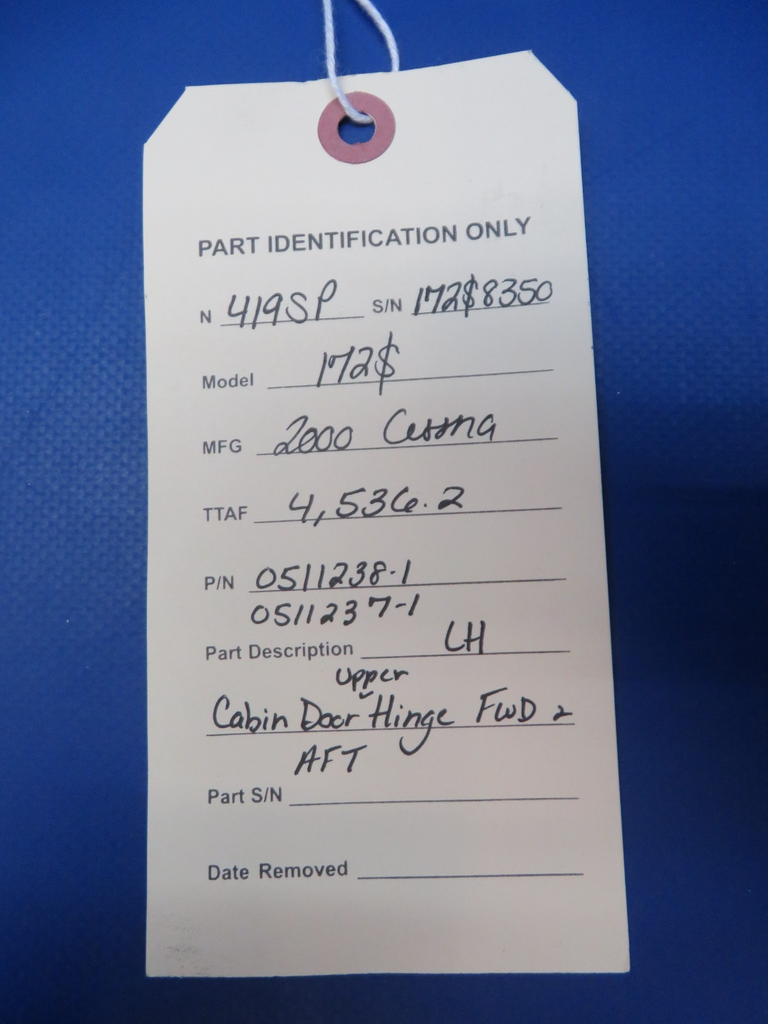 PART IDENTIFICATION ONLY
N 419SP S/N 172$8350
Model 172$
MFG 2000 Cessna
TTAF 4,536.2
P/N 0511238-1
0511237-1
Part Description LH
Upper
Cabin Door Hinge FWD &
AFT
Part S/N
Date Removed